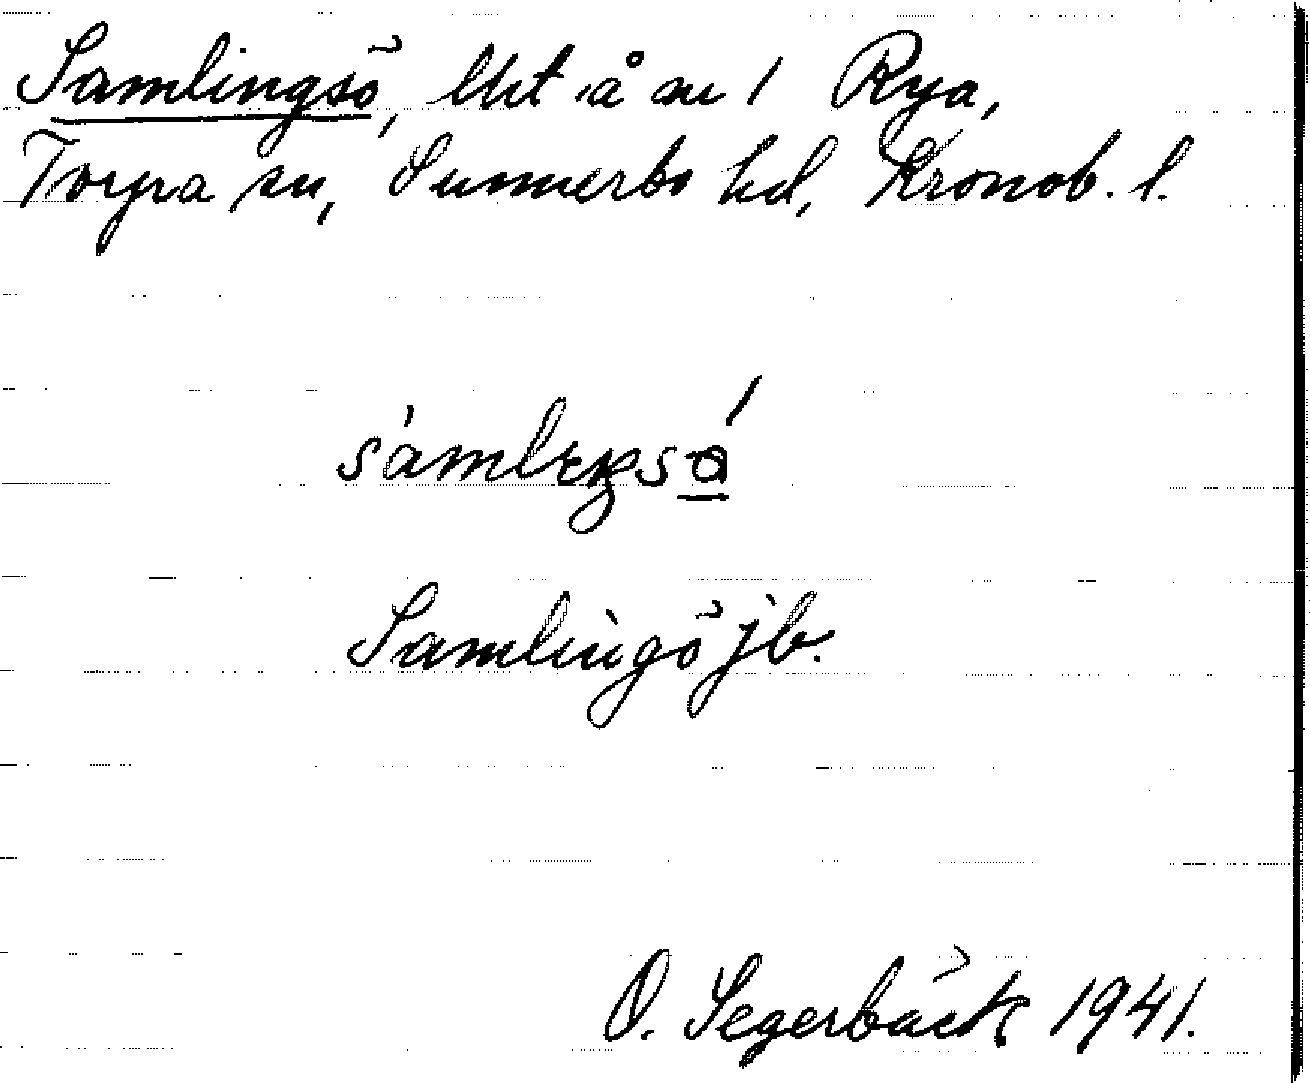 Samlingsö, lht å nr 1 Rya,
Torpa sn, Sunnerbo hd, Kronob. l.
Samlingö jb.
O. Segerbäck 1941.